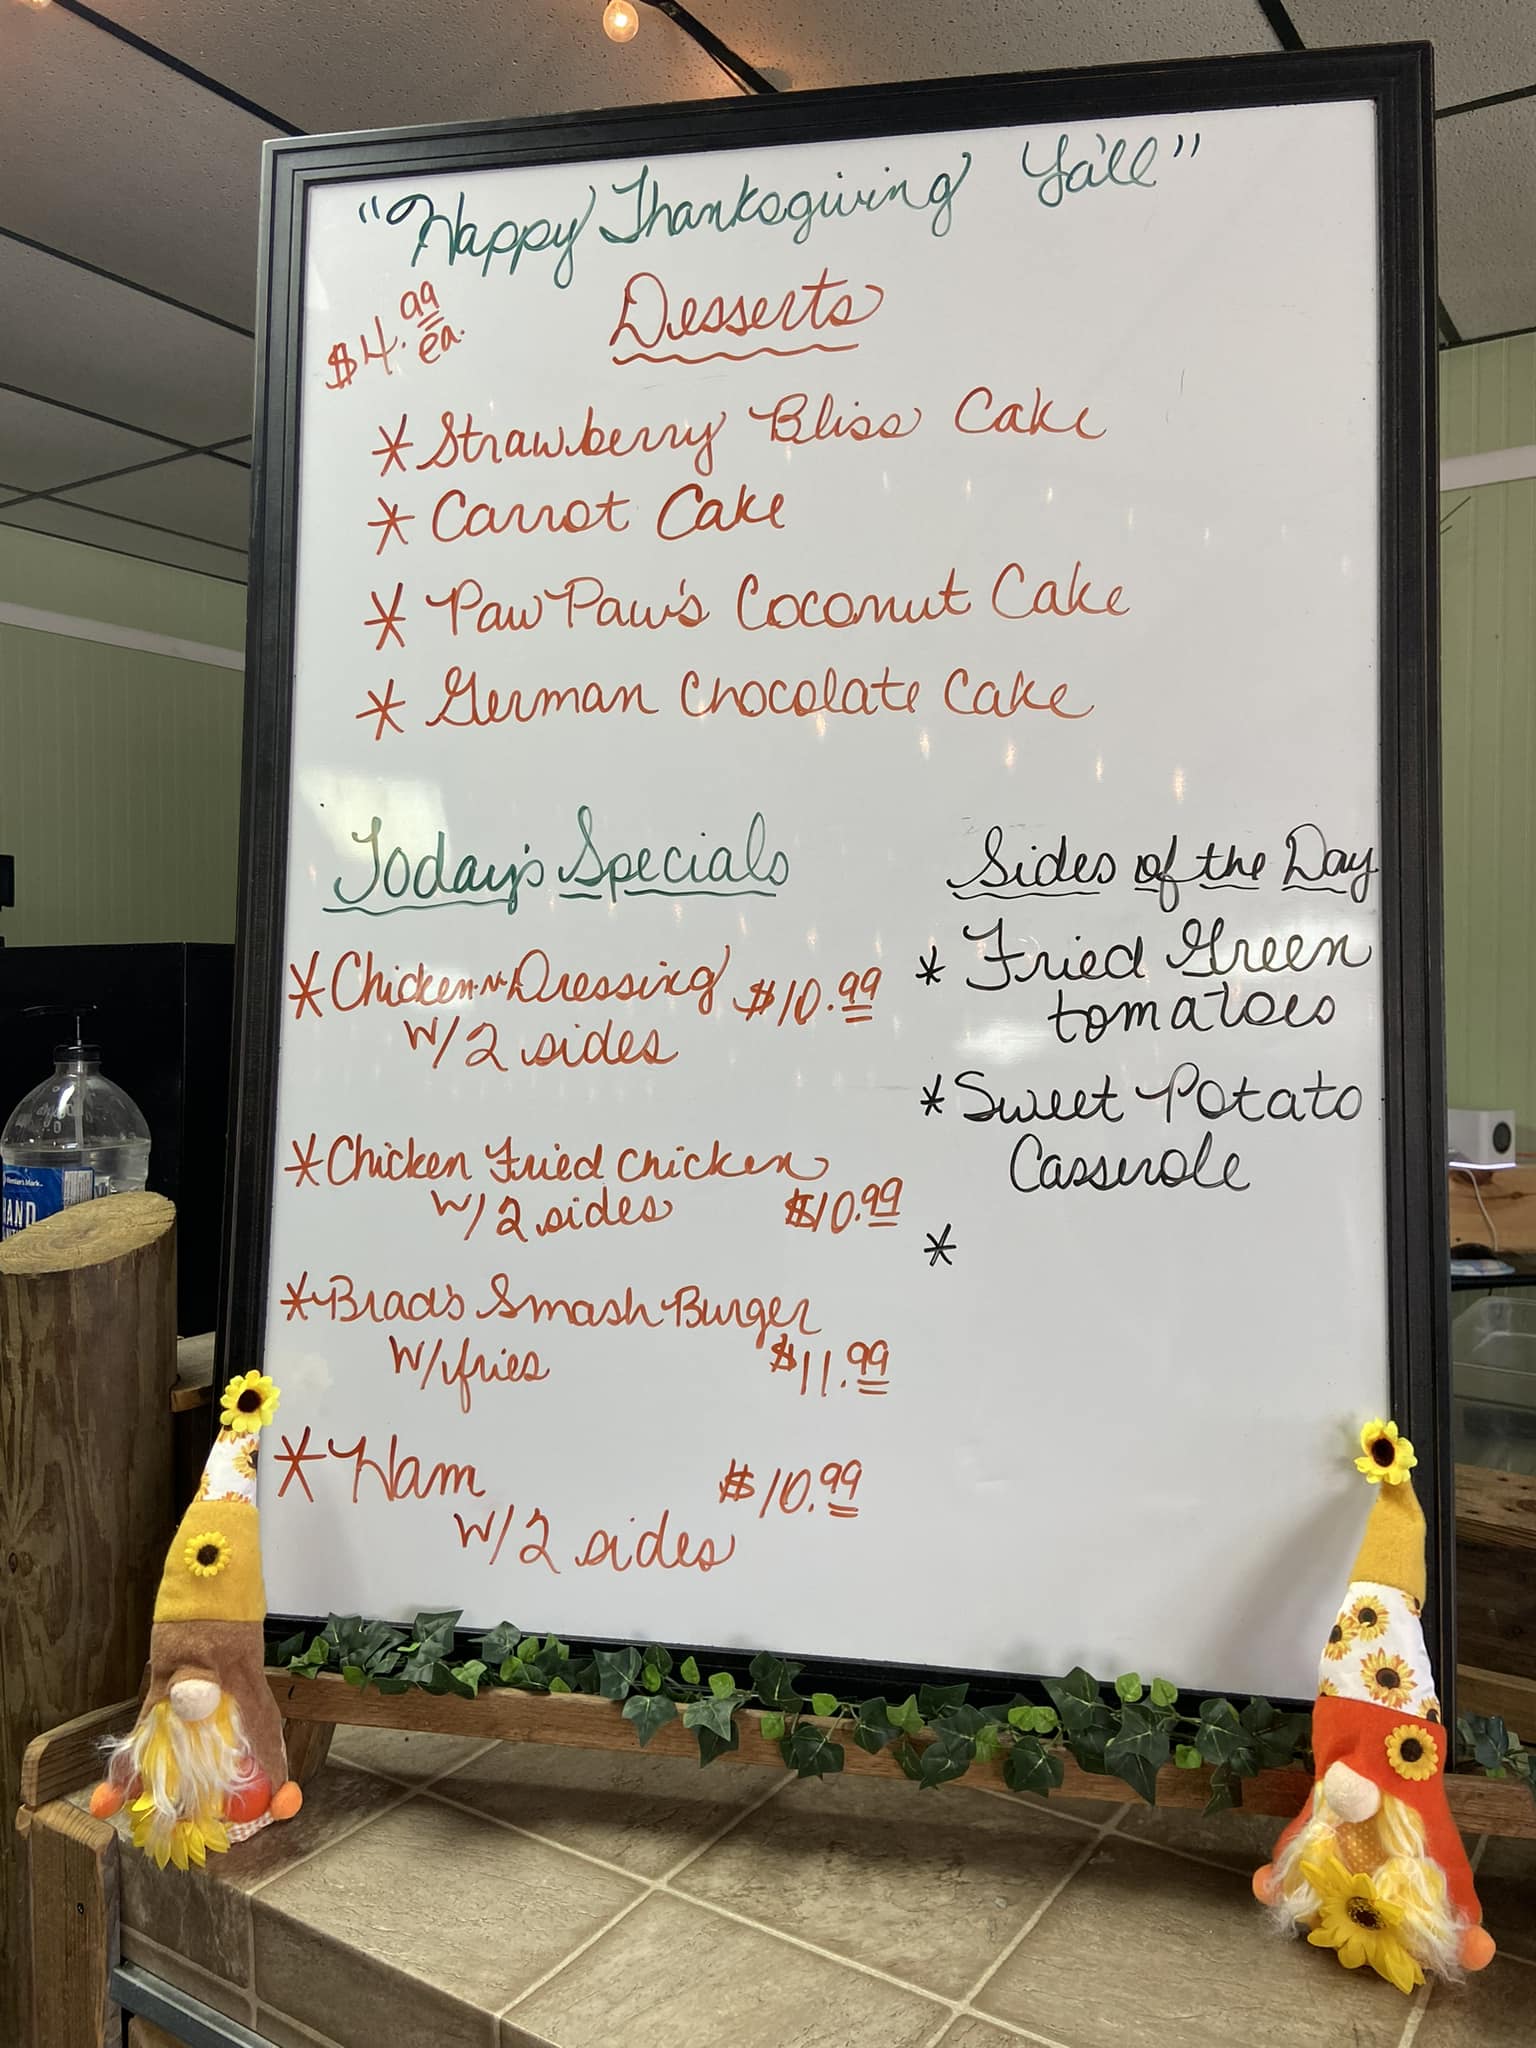 "Happy Thanksgiving Ya'll"
$4.99 ea.
Desserts
* Strawberry Bliss Cake
* Carrot Cake
* PawPaw's Coconut Cake
* German Chocolate Cake
Today's Specials
* Chicken-n-Dressing $10.99
W/2 sides
* Chicken Fried Chicken
W/2 sides $10.99
* Brad's Smash Burger
W/fries $11.99
* Ham $10.99
W/2 sides
Sides of the Day
* Fried Green
tomatoes
* Sweet Potato
Casserole
*
Member's Mark